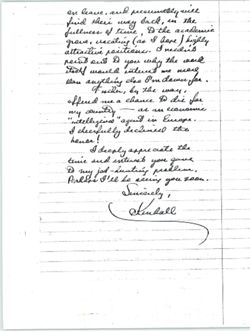 on leave, and presumably will
find their way back, in the
fullness of time, to the academic
grove, vacating (as I hope) highly
attractive positions. I needn't
point out to you why the work
itself would interest me more
than anything else I'm down for.
by the way,
offered me a chance to die for
my country — as an economic
"intelligence" agent in Europe.
I cheerfully declined the
honor!
I deeply appreciate the
time and interest you gave
to my job-hunting problem.
Perhaps I'll be seeing you soon.
Sincerely,
Kendall